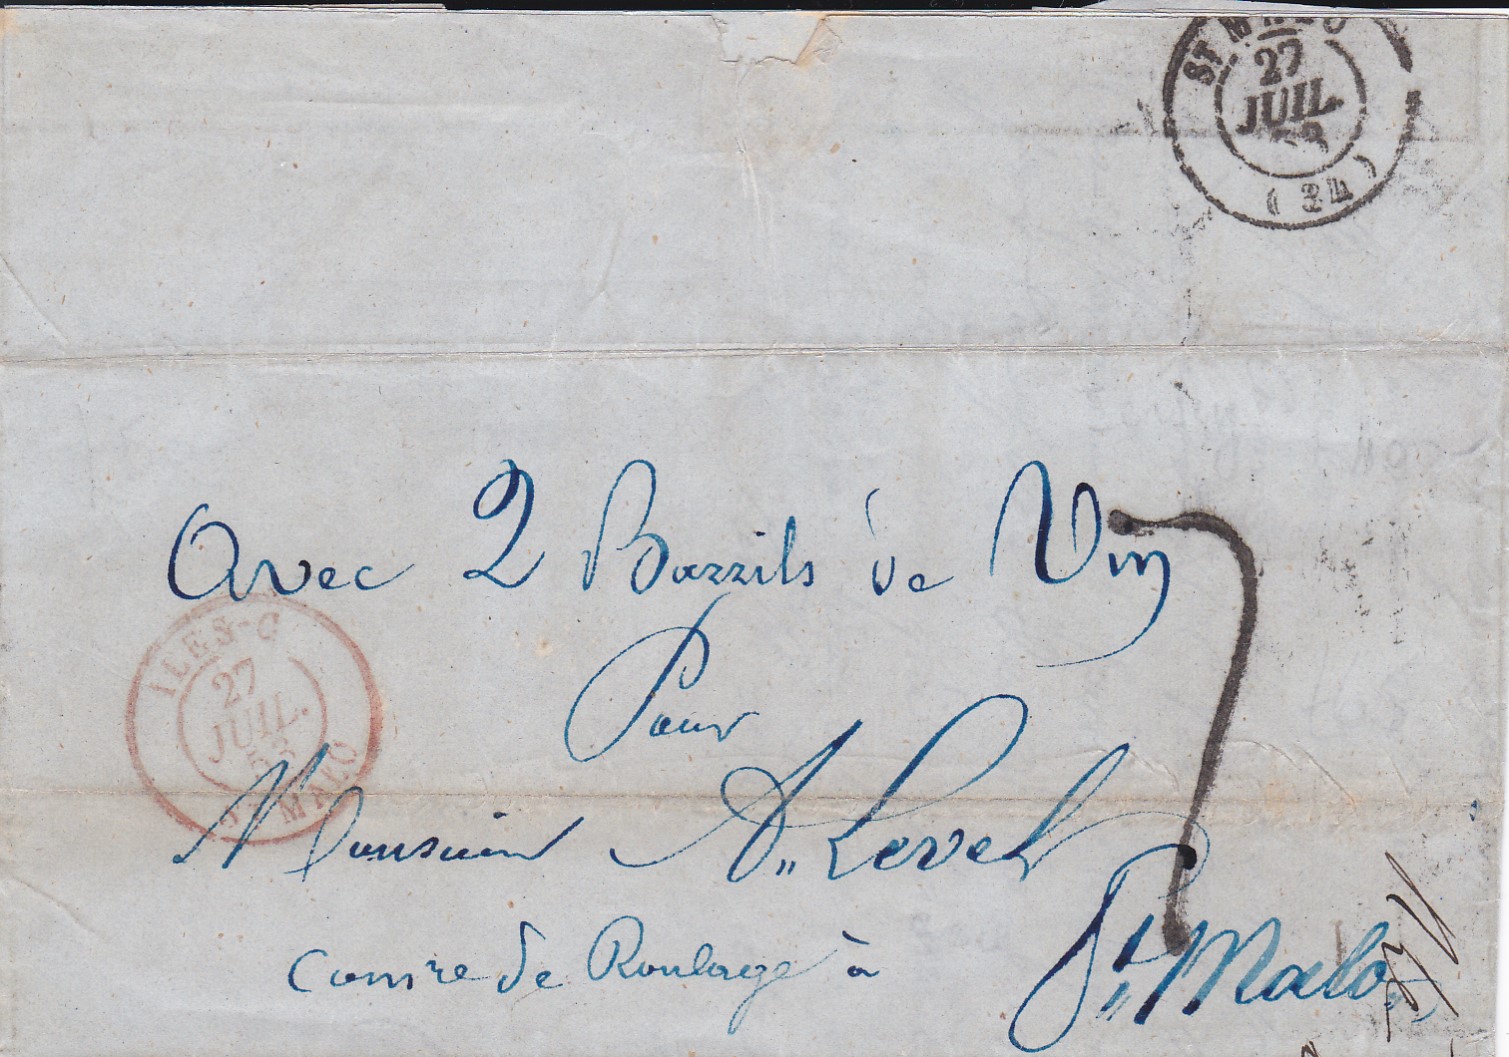 ST MALO
27
JUIL.
53
(34)
Avec 2 Barrils de Vin
7
Pour
ILES-C
27
JUIL.
53
ST MALO
Monsieur A. Level
Comre de Roulage à
St Malo